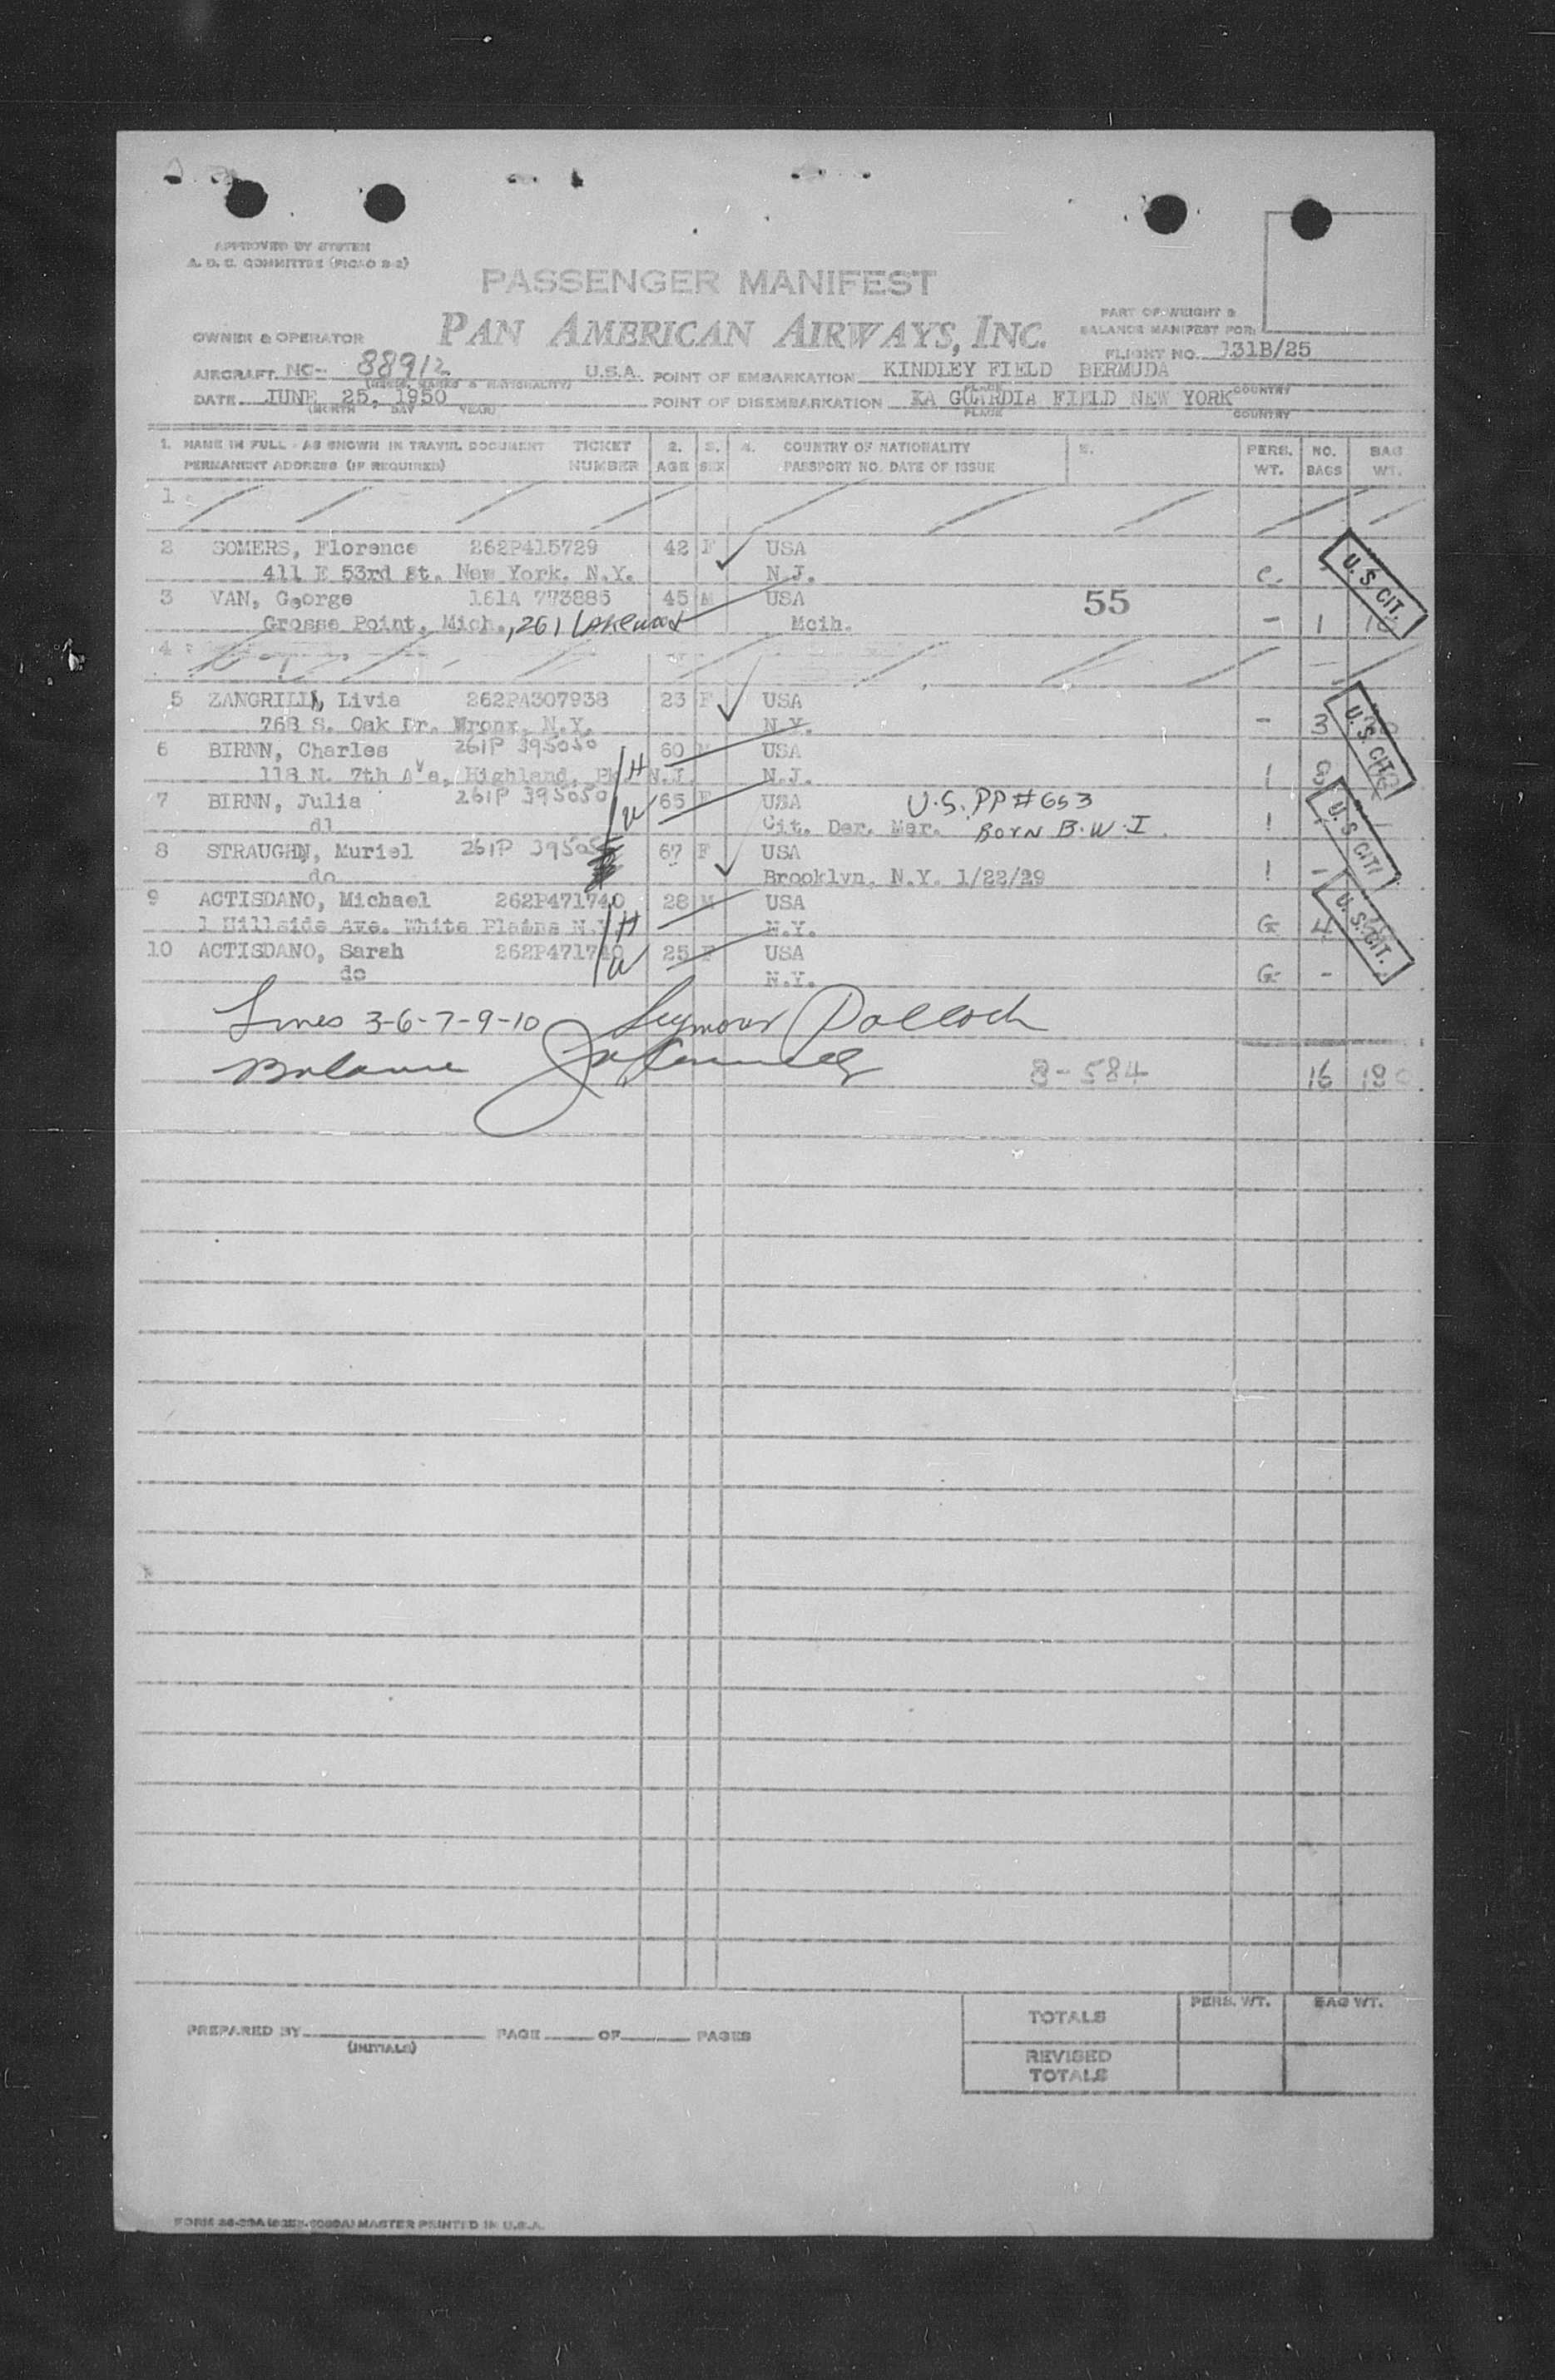 APPROVED BY SYSTEM
A. D. C. COMMITTEE (PICAO S-2)
PASSENGER MANIFEST
OWNER & OPERATOR PAN AMERICAN AIRWAYS, INC.
PART OF WEIGHT &
BALANCE MANIFEST FOR:
FLIGHT NO. 131B/25
AIRCRAFT NC- 88912 U.S.A. POINT OF EMBARKATION KINDLEY FIELD BERMUDA
PLACE COUNTRY
DATE JUNE 25, 1950 POINT OF DISEMBARKATION KA GUARDIA FIELD NEW YORK
(MONTH DAY YEAR) PLACE COUNTRY
1. NAME IN FULL - AS SHOWN IN TRAVEL DOCUMENT TICKET 2. 3. 4. COUNTRY OF NATIONALITY 5. PERS. NO. BAG
PERMANENT ADDRESS (IF REQUIRED) NUMBER AGE SEX PASSPORT NO. DATE OF ISSUE WT. BAGS WT.
1
2 SOMERS, Florence 262P415729 42 F USA
411 E 53rd St. New York. N.Y. N.J. C. U. S. CIT.
3 VAN, George 161A 773885 45 M USA 55
Grosse Point, Mich., 261 Lakewood Mcih. - 1
4
5 ZANGRILLI, Livia 262PA307938 23 F USA
768 S. Oak Dr. Wronx, N.Y. N.Y. - 3 U. S. CIT.
6 BIRNN, Charles 261P 395050 60 M USA
118 N. 7th Ave, Highland, Pk. N.J. H N.J. 1 8
7 BIRNN, Julia 261P 395050 W 65 F USA U.S. PP# 653
dl Cit. Der. Mar. BORN B.W.I. 1 U. S. CIT.
8 STRAUGHN, Muriel 261P 39505 67 F USA
do Brooklyn, N.Y. 1/22/29 1 -
9 ACTISDANO, Michael 262P471740 28 M USA
1 Hillside Ave. White Plains N.Y. H N.Y. G 4 U. S. CIT.
10 ACTISDANO, Sarah 262P471740 W 25 F USA
do N.Y. G -
Lines 3-6-7-9-10 Seymour Pollock
Balance 8-584 16
PREPARED BY PAGE OF PAGES
(INITIALS)
TOTALS PERS. WT. BAG WT.
REVISED
TOTALS
MASTER PRINTED IN U.S.A.